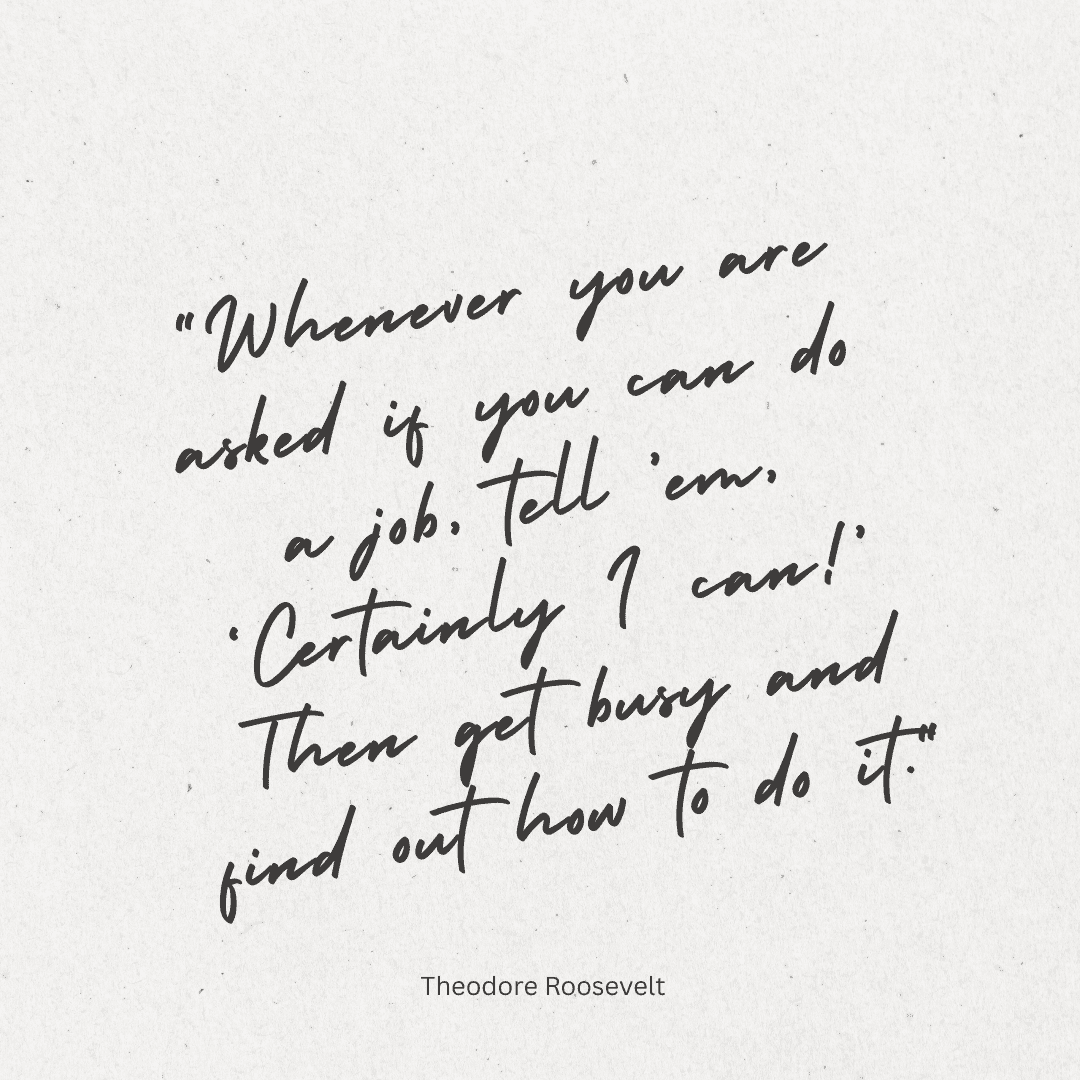 "Whenever you are
asked if you can do
a job, tell 'em,
'Certainly I can!'
Then get busy and
find out how to do it."
Theodore Roosevelt